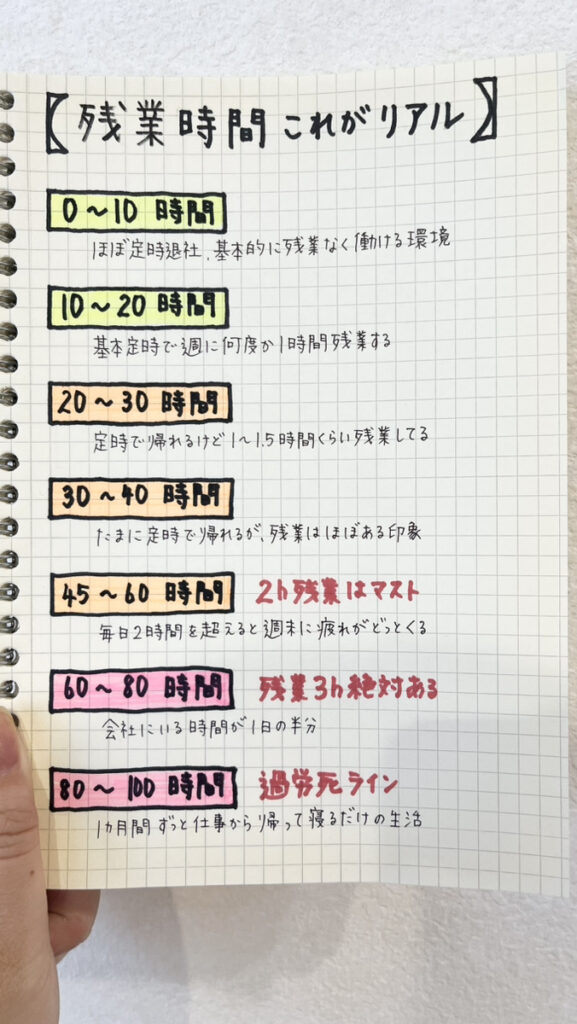 【残業時間これがリアル】
0～10時間
ほぼ定時退社、基本的に残業なく働ける環境
10～20時間
基本定時で週に何度か1時間残業する
20～30時間
定時で帰れるけど1～1.5時間くらい残業してる
30～40時間
たまに定時で帰れるが、残業はほぼある印象
45～60時間 2h残業はマスト
毎日2時間を超えると週末に疲れがどっとくる
60～80時間 残業3h絶対ある
会社にいる時間が1日の半分
80～100時間 過労死ライン
1カ月間ずっと仕事から帰って寝るだけの生活